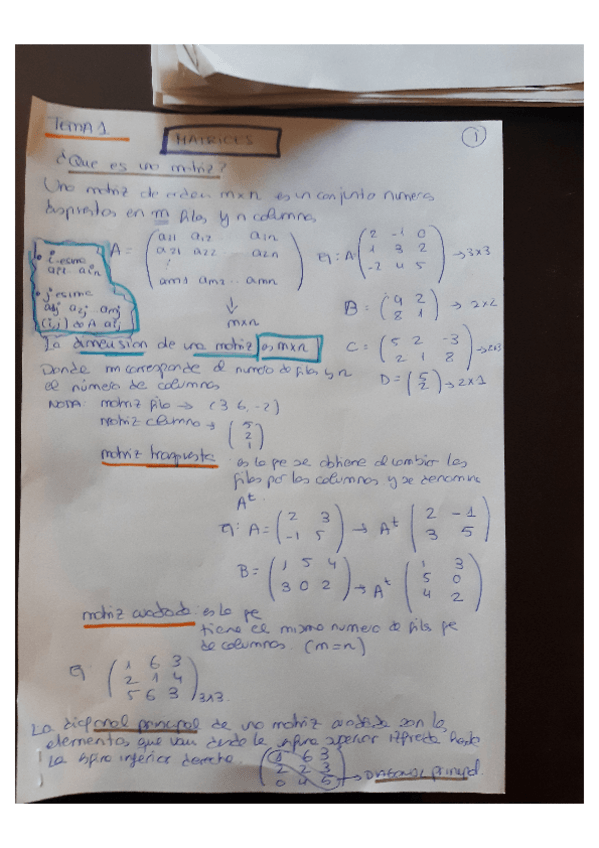 TEMA 1
MATRICES
1
¿Que es una matriz?
Una matriz de orden m×n es un conjunto numeros
dispuestos en m filas y n columnas
A = ( a11 a12 a1n
a21 a22 a2n
⋮
am1 am2 .. amn )
↓
m×n
• i-esima
ai1 ain
• j-esima
a1j a2j amj
(i,j) de A aij
Ej: A ( 2 -1 0
1 3 2
-2 4 5 ) → 3×3
B = ( 9 2
8 1 ) → 2×2
C = ( 5 2 -3
2 1 8 ) → 2×3
D = ( 5
2 ) → 2×1
La dimension de una matriz es m×n
Donde m corresponde al numero de filas y n
el número de columnas
NOTA: matriz fila → (3 6, -2)
matriz columna → ( 5
2
1 )
matriz traspuesta es la que se obtiene al cambiar las
filas por las columnas y se denomina
A^t
Ej: A = ( 2 3
-1 5 ) → A^t ( 2 -1
3 5 )
B = ( 1 5 4
3 0 2 ) → A^t ( 1 3
5 0
4 2 )
matriz cuadrada es la que
tiene el mismo numero de filas que
de columnas. (m=n)
Ej ( 1 6 3
2 1 4
5 6 3 ) 3×3.
La diagonal principal de una matriz cuadrada son los
elementos que van desde la esquina superior izquierda hasta
la esquina inferior derecha.
( 1 6 3
2 2 3
0 4 5 ) → Diagonal principal.